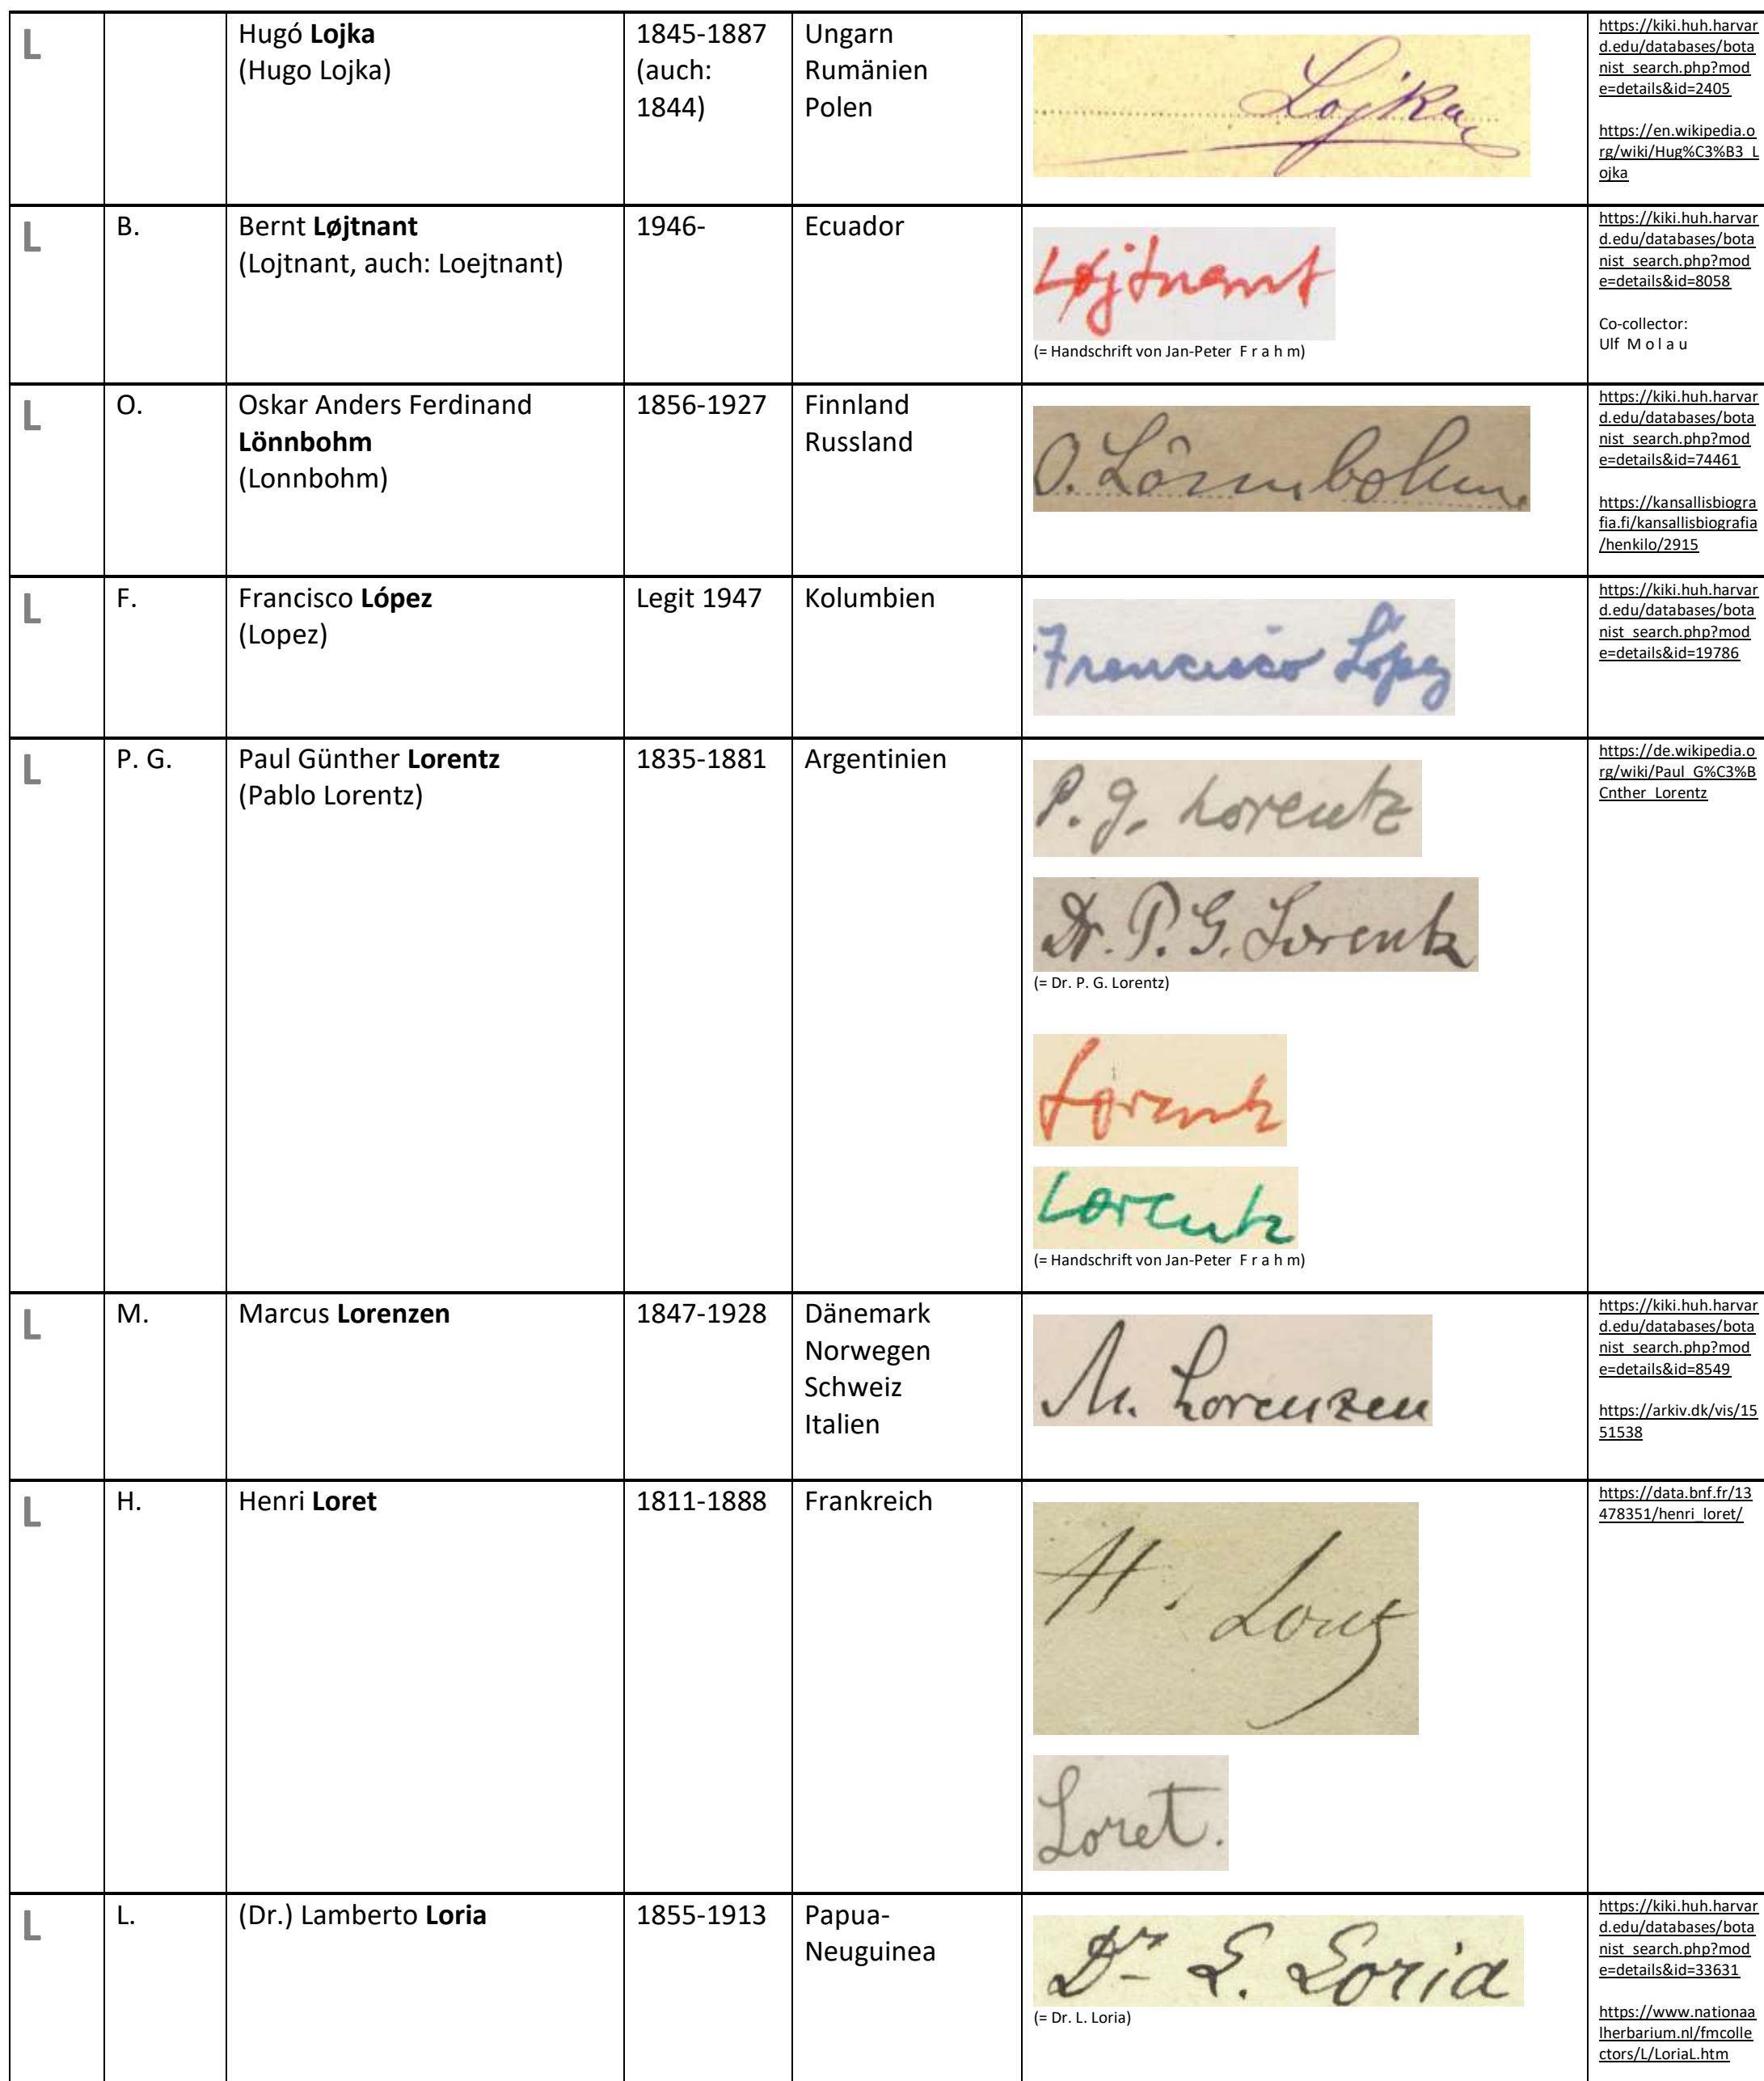 L
Hugó Lojka
(Hugo Lojka)
1845-1887
(auch:
1844)
Ungarn
Rumänien
Polen
Lojka
https://kiki.huh.harvar
d.edu/databases/bota
nist_search.php?mod
e=details&id=2405
https://en.wikipedia.o
rg/wiki/Hug%C3%B3_L
ojka
L
B.
Bernt Løjtnant
(Lojtnant, auch: Loejtnant)
1946-
Ecuador
Løjtnant
(= Handschrift von Jan-Peter F r a h m)
https://kiki.huh.harvar
d.edu/databases/bota
nist_search.php?mod
e=details&id=8058
Co-collector:
Ulf M o l a u
L
O.
Oskar Anders Ferdinand
Lönnbohm
(Lonnbohm)
1856-1927
Finnland
Russland
O. Lönnbohm
https://kiki.huh.harvar
d.edu/databases/bota
nist_search.php?mod
e=details&id=74461
https://kansallisbiogra
fia.fi/kansallisbiografia
/henkilo/2915
L
F.
Francisco López
(Lopez)
Legit 1947
Kolumbien
Francisco López
https://kiki.huh.harvar
d.edu/databases/bota
nist_search.php?mod
e=details&id=19786
L
P. G.
Paul Günther Lorentz
(Pablo Lorentz)
1835-1881
Argentinien
P. G. Lorentz
Dr. P. G. Lorentz
(= Dr. P. G. Lorentz)
Lorentz
Lorentz
(= Handschrift von Jan-Peter F r a h m)
https://de.wikipedia.o
rg/wiki/Paul_G%C3%B
Cnther_Lorentz
L
M.
Marcus Lorenzen
1847-1928
Dänemark
Norwegen
Schweiz
Italien
M. Lorenzen
https://kiki.huh.harvar
d.edu/databases/bota
nist_search.php?mod
e=details&id=8549
https://arkiv.dk/vis/15
51538
L
H.
Henri Loret
1811-1888
Frankreich
H. Loret
Loret.
https://data.bnf.fr/13
478351/henri_loret/
L
L.
(Dr.) Lamberto Loria
1855-1913
Papua-
Neuguinea
Dr L. Loria
(= Dr. L. Loria)
https://kiki.huh.harvar
d.edu/databases/bota
nist_search.php?mod
e=details&id=33631
https://www.nationaa
lherbarium.nl/fmcolle
ctors/L/LoriaL.htm